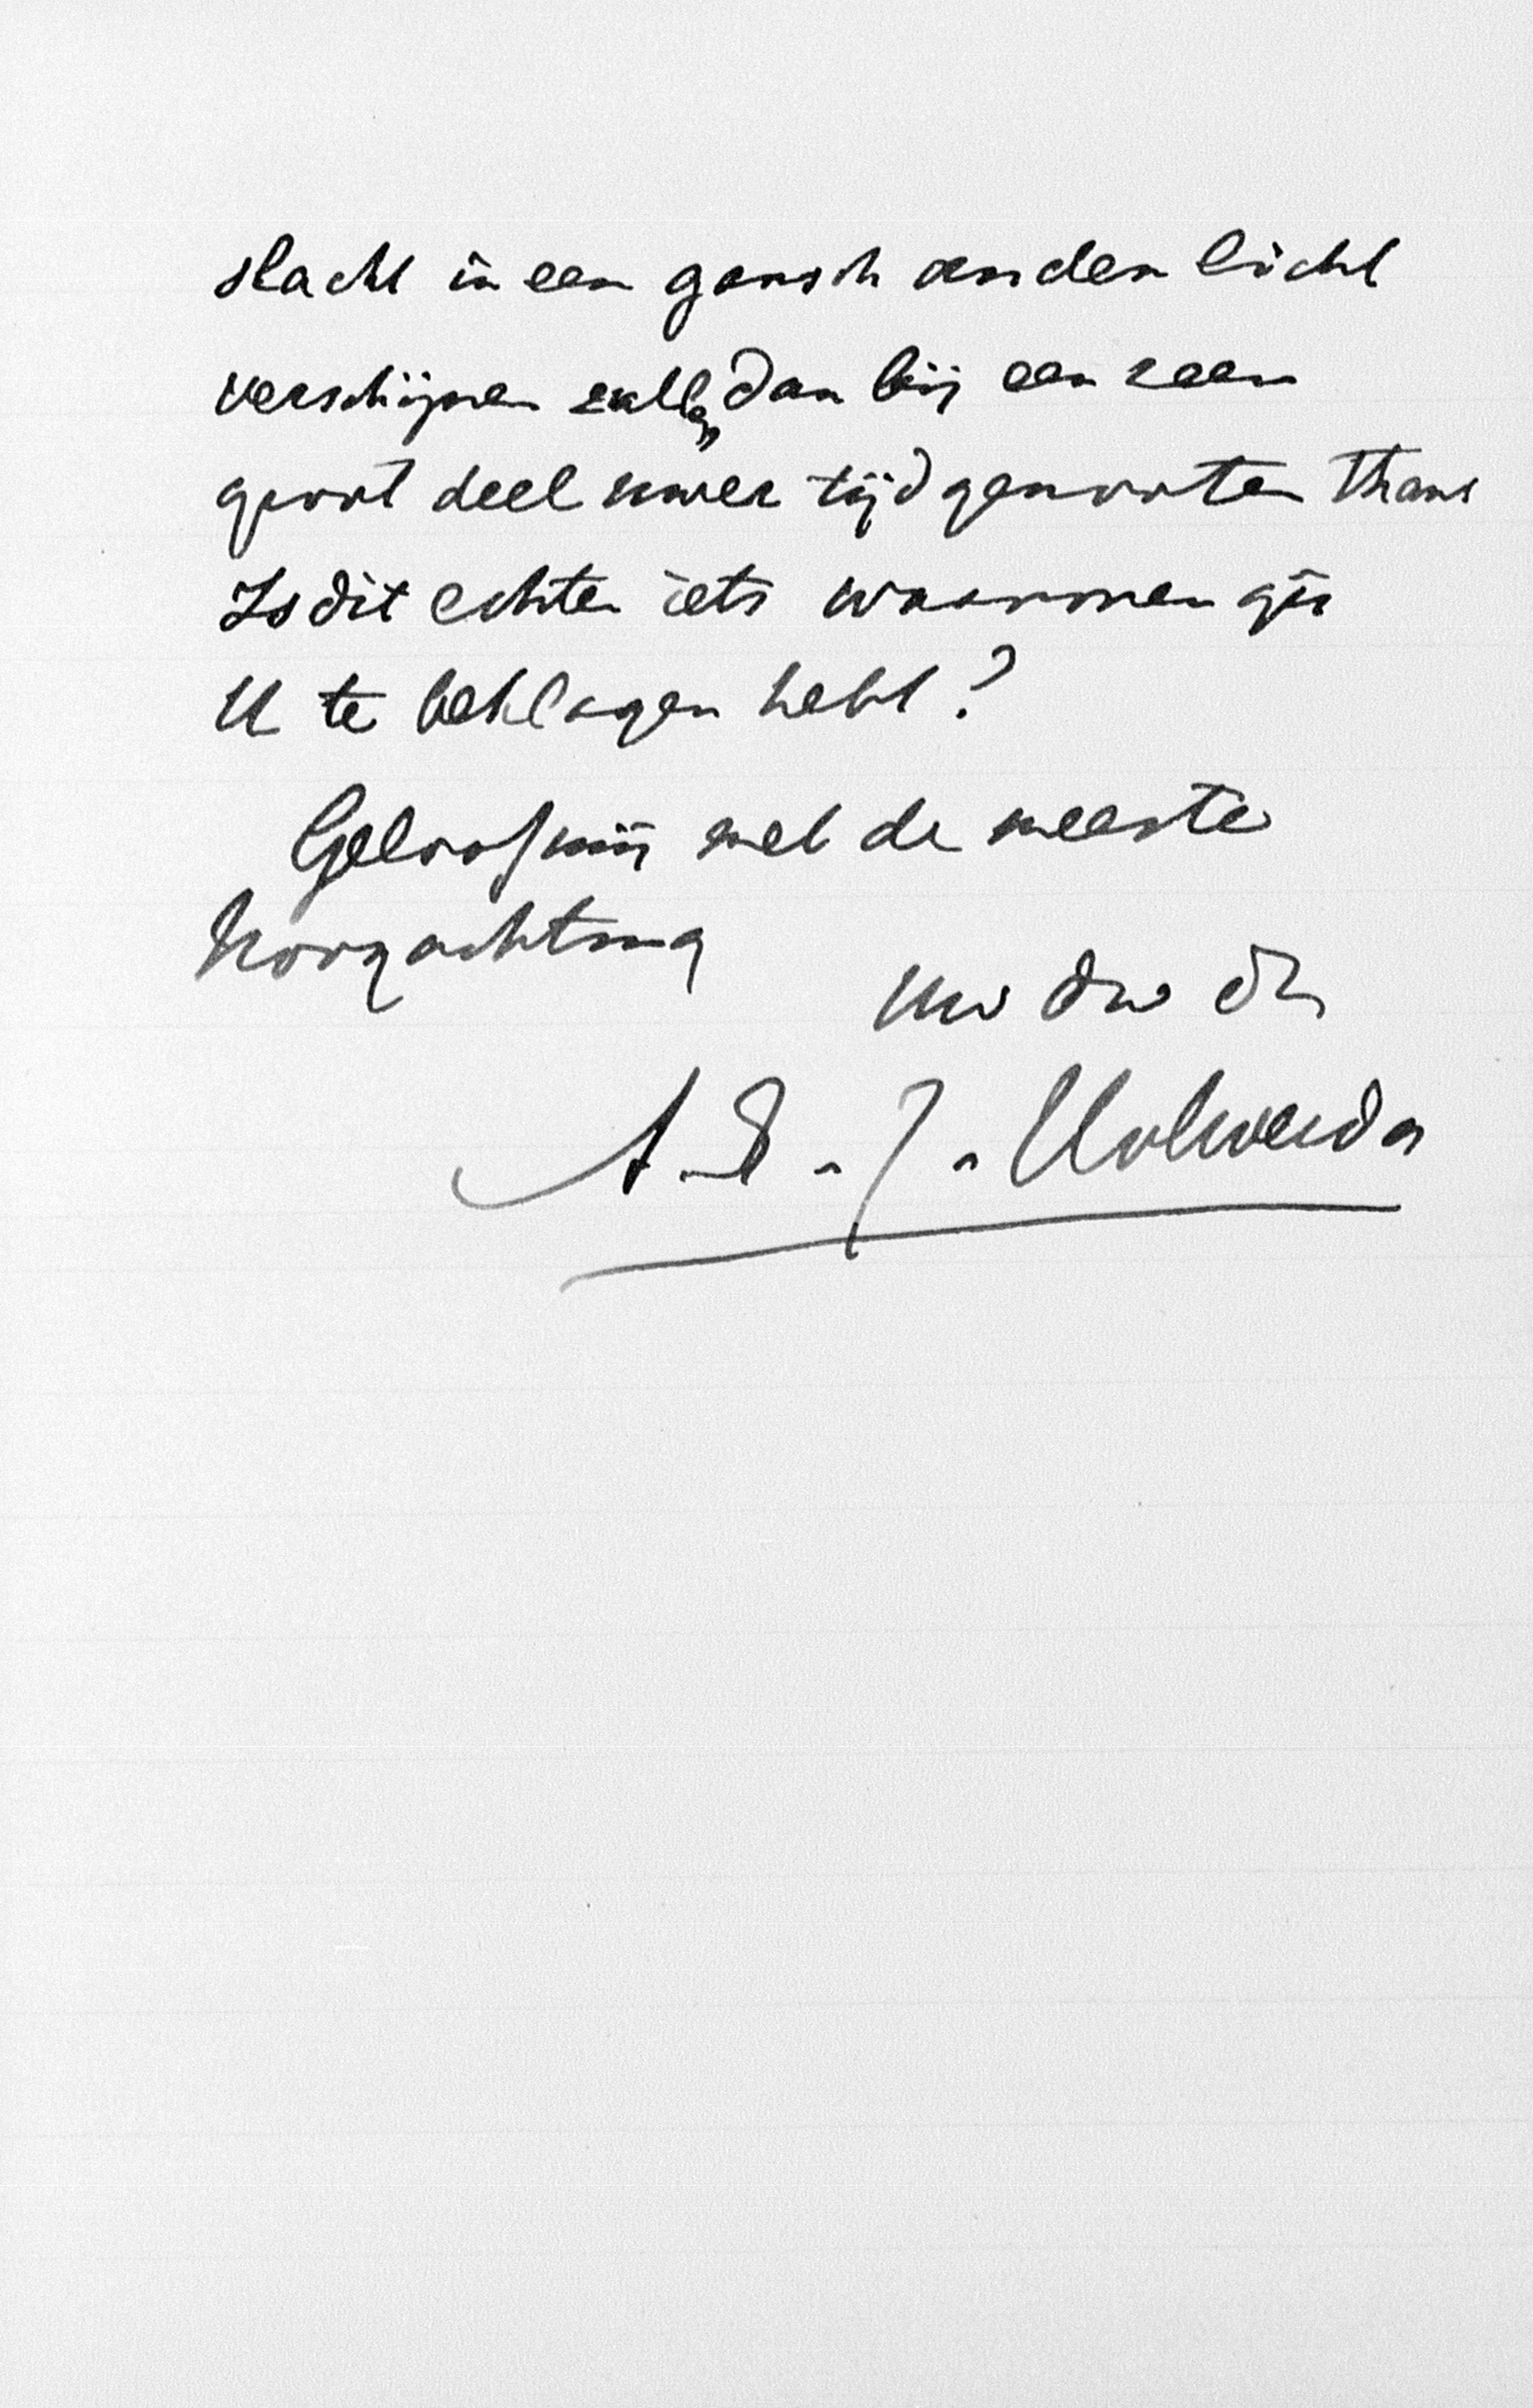 slacht in een gansch ander licht
verschijnen zullen dan bij een zeer
groot deel uwer tijdgenooten thans
Is dit echter iets waarover gij
U te beklagen hebt?
Geloof mij met de meeste
hoogachting
Uw dw dr
A. E. J. Holwerda